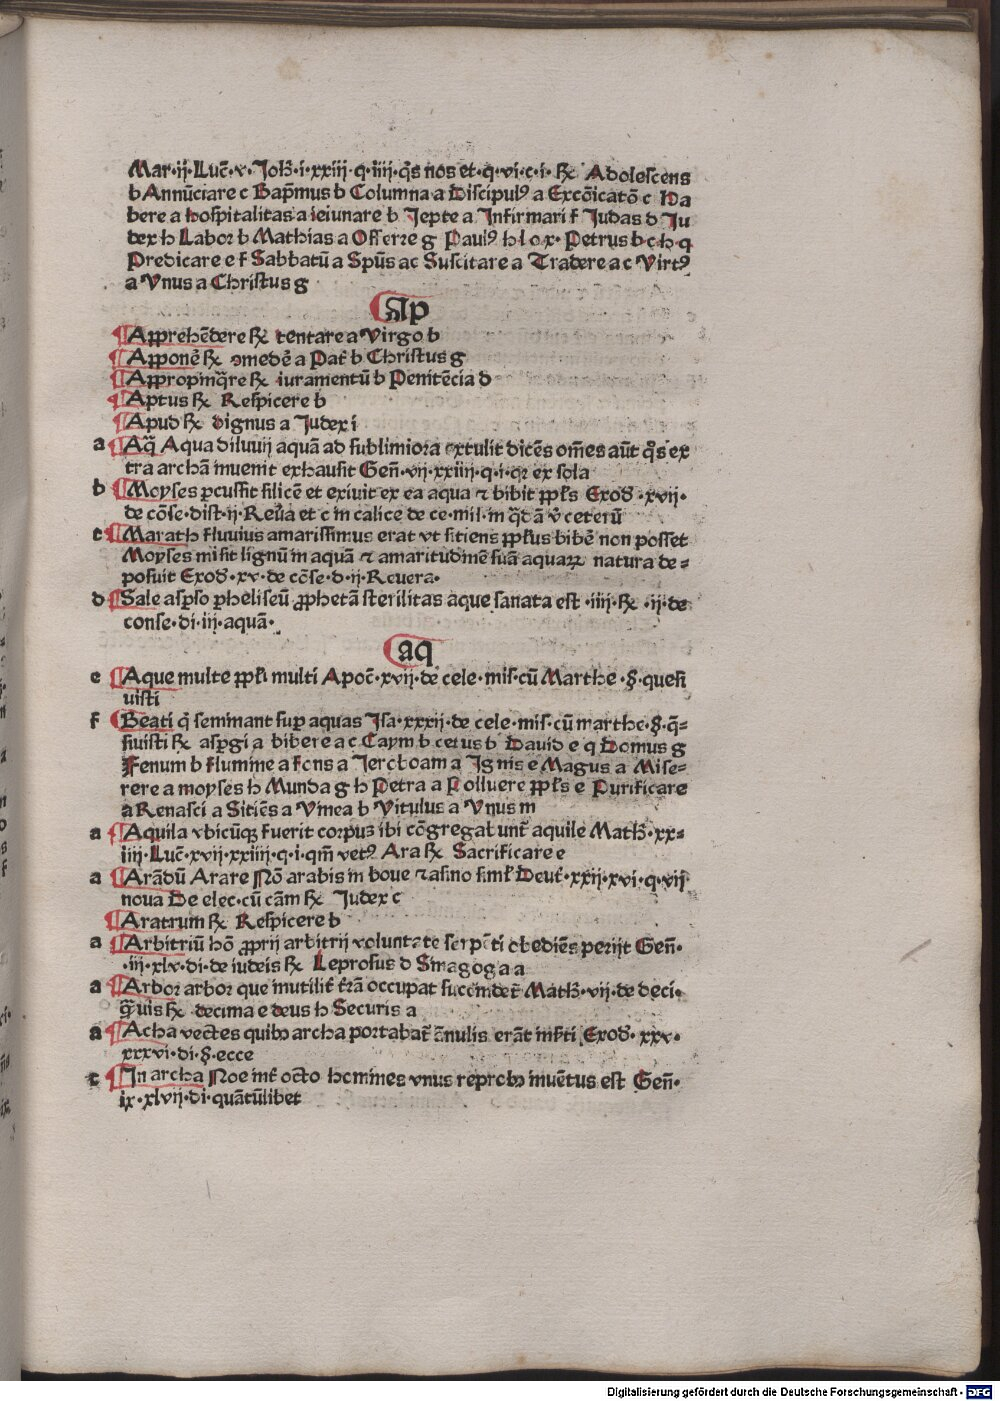 Mar·ij·Luc̄·v·Joh̄·i·xxiij·q·iiij·q̄s nos et·q·vi·c·i· ℞ Adolescens
b Annūciare c Bap̄mus b Columna a Discipulꝰ a Excōicatō c Ha
bere a hospitalitas a ieiunare b Jepte a Infirmari f Judas d Ju
dex h Labor b Mathias a Offerre g Paulꝰ h l o x· Petrus b c h q
Predicare e f Sabbatū a Sp̄us a c Suscitare a Tradere a c Virtꝰ
a Vnus a Christus g
Ap
Apprehēdere ℞ tentare a Virgo b
Apponē ℞ ꝯmedē a Pat̄ b Christus g
Appropinq̄re ℞ iuramentū b Penitēcia d
Aptus ℞ Respicere b
Apud ℞ dignus a Judex i
a Aq̄ Aqua diluuij aquā ad sublimiora extulit dicēs om̄es aūt q̄s ex
tra archā inuenit exhausit Gen̄·vij·xxiiij·q·i·qꝛ ex sola
b Moyses ꝑcussit silicē et exiuit ex ea aqua ⁊ bibit pp̄ls Exod̄·xvij·
de cōse·dist·ij·Reūa et c in calice de ce·mis·in q̄dā v̄ ceterū
c Marath fluuius amarissimus erat vt sitiens pp̄lus bibē non posset
Moyses misit lignū in aquā ⁊ amaritudinē suā aquaꝝ natura de⸗
posuit Exod̄·xv·de cōse·d·ij·Reuera·
d Sale aspso p heliseū ꝓphetā sterilitas aque sanata est·iiij·℞·ij·de
conse·di·iij·aquā·
aq
e Aque multe pp̄li multi Apoc̄·xvij·de cele·mis·cū Marthe·§·quesi
uisti
f Beati q̄ seminant sup aquas Isa·xxxij·de cele·mis·cū marthe·§·q̄⸗
siuisti ℞ aspgi a bibere a c Caym b cetus b David e q Domus g
Fenum b flumine a fons a Jeroboam a Ignis e Magus a Mise⸗
rere a moyses h Munda g h Petra a Polluere pp̄ls e Purificare
a Renasci a Sitiēs a Vinea b Vitulus a Vnus m
a Aquila vbicūqꝫ fuerit corpus ibi cōgregabunt̄ aquile Math̄·xx⸗
iiij·Luc̄·xvij·xxiiij·q·i·qm̄ vetꝰ Ara ℞ Sacrificare e
a Arādū Arare Nō arabis in boue ⁊ asino siml̄ Deut̄·xxij·xvi·q·vij
noua De elec·cū cām ℞ Judex c
Aratrum ℞ Respicere b
a Arbitriū hō ꝓprij arbitrij voluntate serpēti obediēs perijt Gen̄·
·iij·xlv·di·de iudeis ℞ Leprosus d Sinagoga a
a Arbor arbor que inutilit̄ t̄rā occupat succindet̄ Math̄·vij·de deci·
q̄uis ℞ decima e deus h Securis a
a Acha vectes quibꝰ archa portabat̄ ānulis erāt inſti Exod̄·xxv·
xxxvi·di·§·ecce
c In archa Noe int̄ octo homines vnus reprobꝰ inuētus est Gen̄·
ix·xlvij·di·quātūlibet
Digitalisierung gefördert durch die Deutsche Forschungsgemeinschaft - DFG